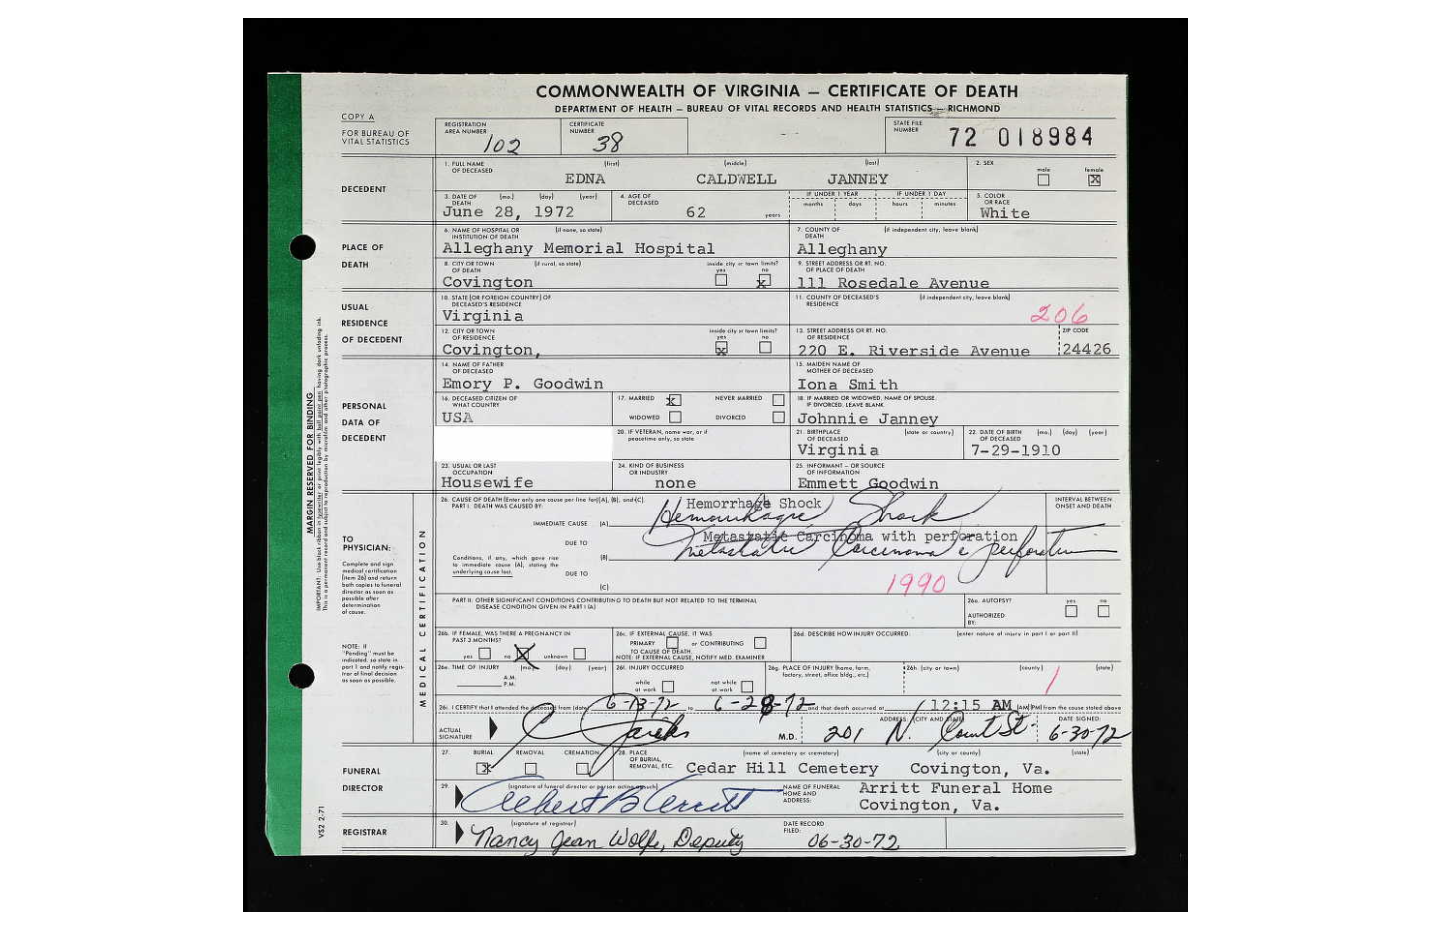 COMMONWEALTH OF VIRGINIA — CERTIFICATE OF DEATH
DEPARTMENT OF HEALTH — BUREAU OF VITAL RECORDS AND HEALTH STATISTICS — RICHMOND
COPY A
FOR BUREAU OF VITAL STATISTICS
REGISTRATION AREA NUMBER 102
CERTIFICATE NUMBER 38
STATE FILE NUMBER 72 018984
DECEDENT
1. FULL NAME OF DECEASED (first) (middle) (last)
EDNA CALDWELL JANNEY
2. SEX male female X
3. DATE OF DEATH (mo.) (day) (year)
June 28, 1972
4. AGE OF DECEASED 62 years
IF UNDER 1 YEAR months days
IF UNDER 1 DAY hours minutes
5. COLOR OR RACE
White
PLACE OF DEATH
6. NAME OF HOSPITAL OR INSTITUTION OF DEATH (if none, so state)
Alleghany Memorial Hospital
7. COUNTY OF DEATH (if independent city, leave blank)
Alleghany
8. CITY OR TOWN OF DEATH (if rural, so state) inside city or town limits? yes no x
Covington
9. STREET ADDRESS OR RT. NO. OF PLACE OF DEATH
111 Rosedale Avenue
USUAL RESIDENCE OF DECEDENT
10. STATE (OR FOREIGN COUNTRY) OF DECEASED'S RESIDENCE
Virginia
11. COUNTY OF DECEASED'S RESIDENCE (if independent city, leave blank)
206
12. CITY OR TOWN OF RESIDENCE inside city or town limits? yes x no
Covington,
13. STREET ADDRESS OR RT. NO. OF RESIDENCE
220 E. Riverside Avenue
ZIP CODE
24426
PERSONAL DATA OF DECEDENT
14. NAME OF FATHER OF DECEASED
Emory P. Goodwin
15. MAIDEN NAME OF MOTHER OF DECEASED
Iona Smith
16. DECEASED CITIZEN OF WHAT COUNTRY
USA
17. MARRIED x NEVER MARRIED
WIDOWED DIVORCED
18. IF MARRIED OR WIDOWED, NAME OF SPOUSE. IF DIVORCED, LEAVE BLANK
Johnnie Janney
20. IF VETERAN, name war, or if peacetime only, so state
21. BIRTHPLACE OF DECEASED (state or country)
Virginia
22. DATE OF BIRTH OF DECEASED (mo.) (day) (year)
7-29-1910
23. USUAL OR LAST OCCUPATION
Housewife
24. KIND OF BUSINESS OR INDUSTRY
none
25. INFORMANT — OR SOURCE OF INFORMATION
Emmett Goodwin
MEDICAL CERTIFICATION
TO PHYSICIAN:
Complete and sign medical certification (item 26) and return both copies to funeral director as soon as possible after determination of cause.
NOTE: If "Pending" must be indicated, so state in part I and notify registrar of final decision as soon as possible.
26. CAUSE OF DEATH (Enter only one cause per line for (A), (B), and (C).
PART I. DEATH WAS CAUSED BY:
INTERVAL BETWEEN ONSET AND DEATH
Hemorrhage Shock
IMMEDIATE CAUSE (A) Hemorrhagic Shock
Metastatic Carcinoma with perforation
DUE TO (B) Metastatic Carcinoma c perforation
Conditions, if any, which gave rise to immediate cause (A), stating the underlying cause last.
DUE TO (C)
1990
PART II. OTHER SIGNIFICANT CONDITIONS CONTRIBUTING TO DEATH BUT NOT RELATED TO THE TERMINAL DISEASE CONDITION GIVEN IN PART I (A)
26a. AUTOPSY? yes no
AUTHORIZED BY:
26b. IF FEMALE, WAS THERE A PREGNANCY IN PAST 3 MONTHS?
yes no X unknown
26c. IF EXTERNAL CAUSE, IT WAS
PRIMARY or CONTRIBUTING
TO CAUSE OF DEATH.
NOTE: IF EXTERNAL CAUSE, NOTIFY MED. EXAMINER
26d. DESCRIBE HOW INJURY OCCURRED. (enter nature of injury in part I or part II)
26e. TIME OF INJURY (mo.) (day) (year)
A.M.
P.M.
26f. INJURY OCCURRED
while at work not while at work
26g. PLACE OF INJURY (home, farm, factory, street, office bldg., etc.)
26h. (city or town) (county) (state)
1
26i. I CERTIFY that I attended the deceased from (date) 6-13-72 to 6-28-72 and that death occurred at 12:15 AM (AM) (PM) from the cause stated above
ACTUAL SIGNATURE M.D.
ADDRESS: (CITY AND STATE)
201 N. Court St.
DATE SIGNED:
6-30-72
FUNERAL DIRECTOR
27. BURIAL x REMOVAL CREMATION
28. PLACE OF BURIAL, REMOVAL, ETC. (name of cemetery or crematory) (city or county) (state)
Cedar Hill Cemetery Covington, Va.
29. (signature of funeral director or person acting as such)
NAME OF FUNERAL HOME AND ADDRESS:
Arritt Funeral Home
Covington, Va.
REGISTRAR
30. (signature of registrar)
Nancy Jean Wolfe, Deputy
DATE RECORD FILED:
06-30-72
VS2 2-71
MARGIN RESERVED FOR BINDING